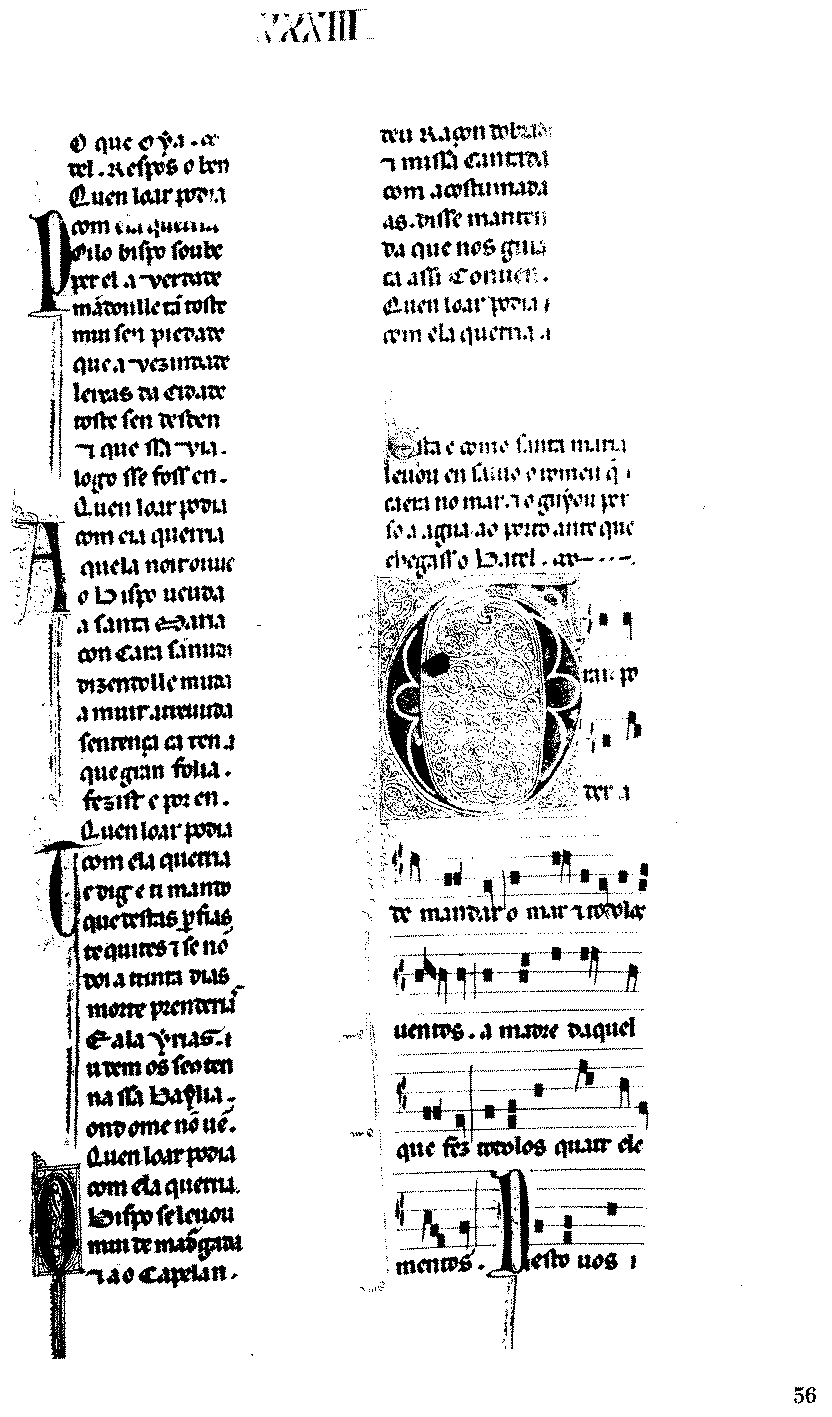 XXXIII
O que oỹa . ce
cel . Respos o ben
Quen loar podia
com ela querria
Poilo bispo soube
per el a verdade
mãdoulle tã toste
mui sen piedade
que a vezindade
leixas da cidade
toste sen desden
⁊ que ssa via .
logo sse foss en .
Quen loar podia
com ela querria
Aquela noit ouue
o bispo ueuda
a santa Maria
con cara sannuda
dizendolle muda
a muit atreuuda
sentença ca ten a
que gran folia .
feziste por en .
Quen loar podia
com ela querria
Te dig e ti mando
que destas pfias
te quites ⁊ se nõ
doi a trinta dias
morte prenderiã
E ala yrias . ⁊
u dem os seo ten
na ssa baylia .
ond ome nõ uẽ .
Quen loar podia
com ela querria
O bispo se leuou
mui de madgada
⁊ ao capelan .
deu raçon dobrada
⁊ missa cantada
com acostumada
as . disse mant en
da que nos guia
ca assi conuen .
Quen loar podia
com ela querria a
Esta e como santa maria
leuou en saluo o romeu q̃
caera no mar . ⁊ o guyou per
so a agua ao porto ante que
chegass o batel .
Gran po
der a
de mandar o mar ⁊ todolos
uentos . a madre daquel
que fez todolos quatr ele
mentos . Desto uos
56